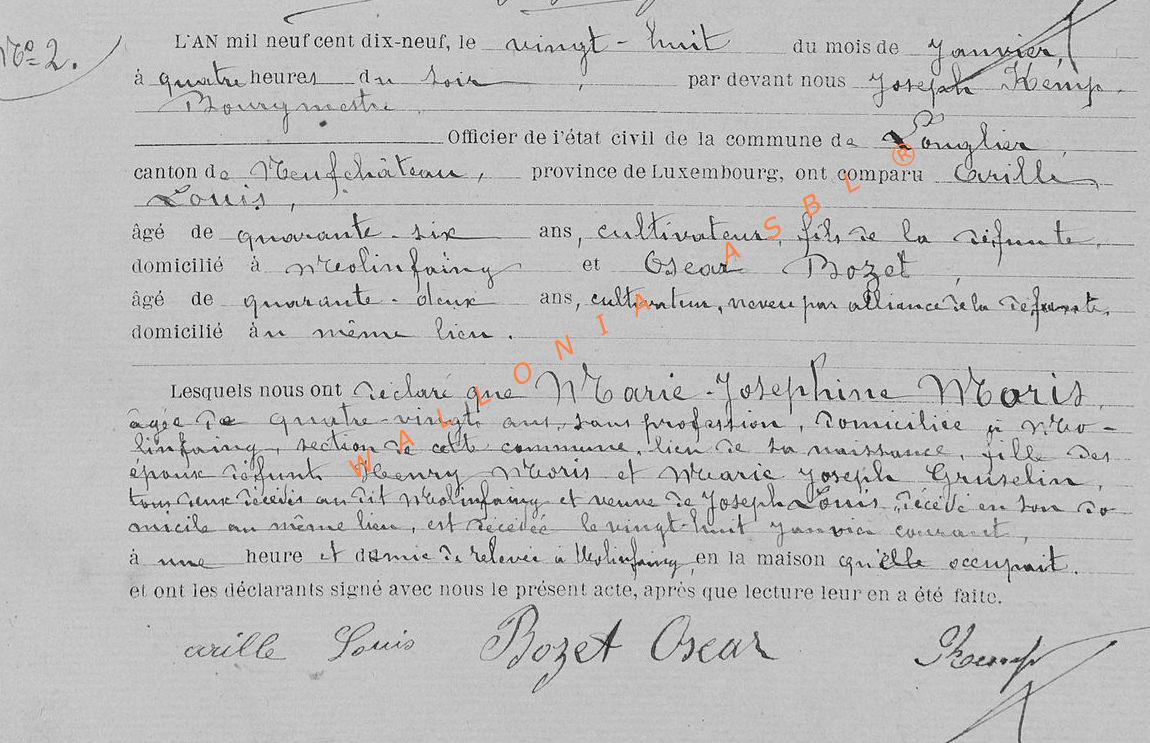 No 2.
L'AN mil neuf cent dix-neuf, le vingt-huit du mois de Janvier,
à quatre heures du soir, par devant nous Joseph Kemp.
Bourgmestre
Officier de l'état civil de la commune de Longlier,
canton de Neufchâteau, province de Luxembourg, ont comparu Cyrille
Louis,
âgé de quarante-six ans, cultivateur, fils de la défunte,
domicilié à Molinfaing et Oscar Bozet,
âgé de quarante-deux ans, cultivateur, neveu par alliance de la défunte,
domicilié au même lieu.
Lesquels nous ont déclaré que Marie-Josephine Maris,
âgée de quatre-vingts ans, sans profession, domiciliée à Mo-
linfaing, section de cette commune, lieu de sa naissance, fille des
époux défunts Henry Moris et Marie Joseph Gruselin,
tous deux décédés au dit Molinfaing et veuve de Joseph Louis, décédé en son do-
micile au même lieu, est décédée le vingt-huit Janvier courant,
à une heure et demie de relevée à Molinfaing, en la maison qu'elle occupait.
et ont les déclarants signé avec nous le présent acte, après que lecture leur en a été faite.
Louis Bozet Oscar JKemp
WALLONIA ASBL ®